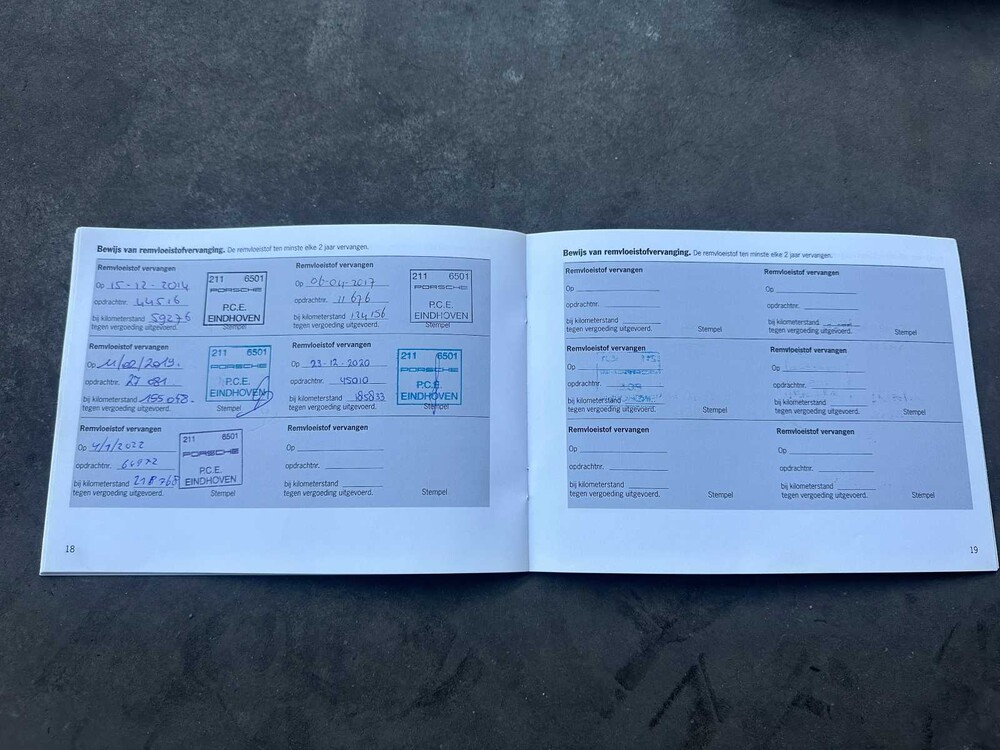 Bewijs van remvloeistofvervanging. De remvloeistof ten minste elke 2 jaar vervangen.
Remvloeistof vervangen
Op 15-12-2014
opdrachtnr. 44516
bij kilometerstand 59276
tegen vergoeding uitgevoerd.
211 6501
PORSCHE
P.C.E.
EINDHOVEN
Stempel
Remvloeistof vervangen
Op 06-04-2017
opdrachtnr. 11 676
bij kilometerstand 124 156
tegen vergoeding uitgevoerd.
211 6501
PORSCHE
P.C.E.
EINDHOVEN
Stempel
Remvloeistof vervangen
Op 11/02/2019.
opdrachtnr. 27 081
bij kilometerstand 155 058.
tegen vergoeding uitgevoerd.
211 6501
PORSCHE
P.C.E.
EINDHOVEN
Stempel
Remvloeistof vervangen
Op 23-12-2020
opdrachtnr. 45010
bij kilometerstand 185833
tegen vergoeding uitgevoerd.
211 6501
PORSCHE
P.C.E.
EINDHOVEN
Stempel
Remvloeistof vervangen
Op 4/1/2022
opdrachtnr. 64972
bij kilometerstand 218 768
tegen vergoeding uitgevoerd.
211 6501
PORSCHE
P.C.E.
EINDHOVEN
Stempel
Remvloeistof vervangen
Op
opdrachtnr.
bij kilometerstand
tegen vergoeding uitgevoerd.
Stempel
18
Bewijs van remvloeistofvervanging. De remvloeistof ten minste elke 2 jaar vervangen.
Remvloeistof vervangen
Op
opdrachtnr.
bij kilometerstand
tegen vergoeding uitgevoerd.
Stempel
Remvloeistof vervangen
Op
opdrachtnr.
bij kilometerstand
tegen vergoeding uitgevoerd.
Stempel
Remvloeistof vervangen
Op
opdrachtnr.
bij kilometerstand
tegen vergoeding uitgevoerd.
Stempel
Remvloeistof vervangen
Op
opdrachtnr.
bij kilometerstand
tegen vergoeding uitgevoerd.
Stempel
Remvloeistof vervangen
Op
opdrachtnr.
bij kilometerstand
tegen vergoeding uitgevoerd.
Stempel
Remvloeistof vervangen
Op
opdrachtnr.
bij kilometerstand
tegen vergoeding uitgevoerd.
Stempel
19